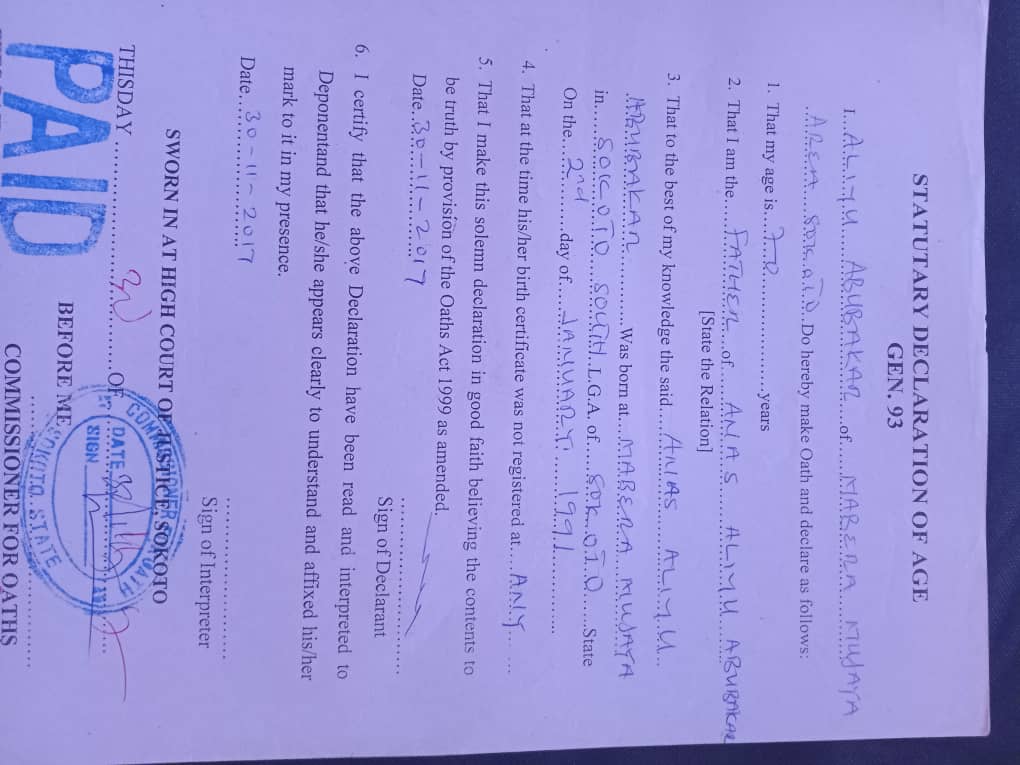 STATUTARY DECLARATION OF AGE
GEN. 93
I...ALIYU.....ABUBAKAR.....of.....MABERA.....MUJAYA
...AREA....SOKOTO...Do hereby make Oath and declare as follows:
1. That my age is...72...................years
2. That I am the....FATHER....of.....ANAS.....ALIYU.....ABUBAKAR
[State the Relation]
3. That to the best of my knowledge the said....ANAS.....ALIYU..
ABUBAKAR.............Was born at....MABERA....MUJAYA
in......SOKOTO SOUTH..L.G.A. of......SOKOTO......State
On the....2nd..........day of.....JANUARY.......1991............
4. That at the time his/her birth certificate was not registered at....ANY......
5. That I make this solemn declaration in good faith believing the contents to
be truth by provision of the Oaths Act 1999 as amended.
Date..30-11-2017
Sign of Declarant
6. I certify that the above Declaration have been read and interpreted to
Deponentand that he/she appears clearly to understand and affixed his/her
mark to it in my presence.
Date...30-11-2017
Sign of Interpreter
SWORN IN AT HIGH COURT OF JUSTICE, SOKOTO
THISDAY ..............................OF
PAID
BEFORE ME
DATE
SIGN
SOKOTO STATE
COMMISSIONER FOR OATHS